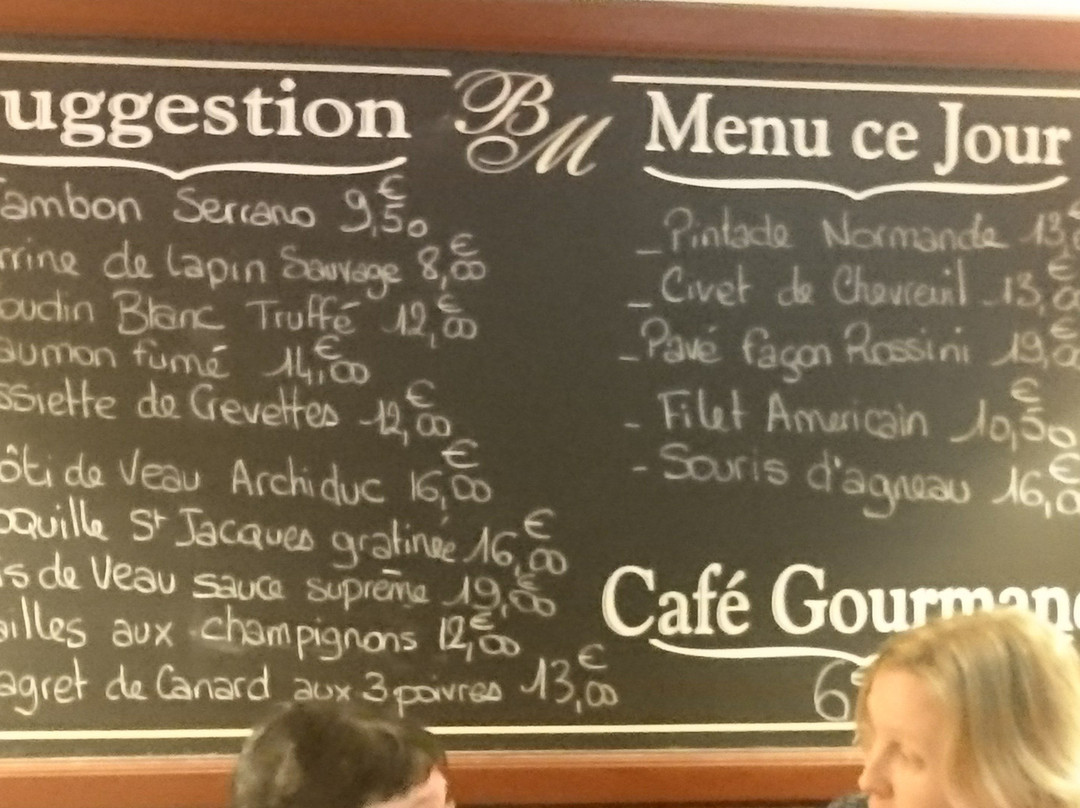 uggestion
BM
Menu ce Jour
ambon Serrano 9,50€
rrine de lapin Sauvage 8,00€
oudin Blanc Truffé 12,00€
aumon fumé 14,00€
ssiette de Crevettes 12,00€
ôti de Veau Archiduc 16,00€
oquille St Jacques gratinée 16,00€
is de Veau sauce suprême 19,00€
ailles aux champignons 12,00€
agret de Canard aux 3 poivres 13,00€
- Pintade Normande 13,
- Civet de Chevreuil 13,0€
- Pavé façon Rossini 19,0€
- Filet Americain 10,50€
- Souris d'agneau 16,0€
Café Gourman
6